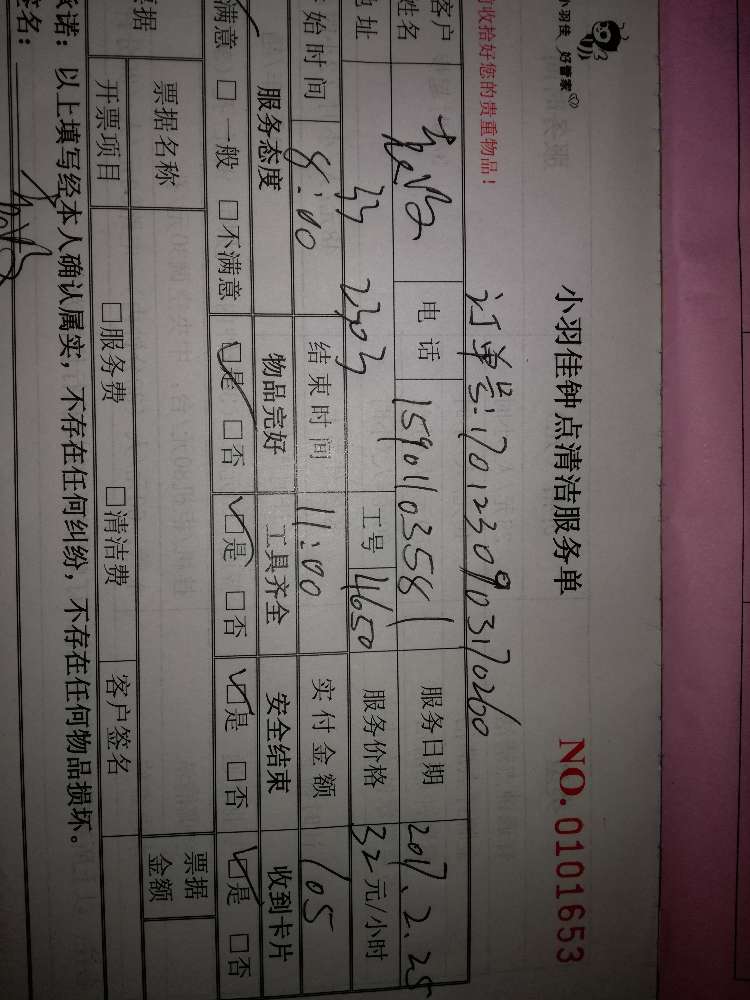 小羽佳 好管家
小羽佳钟点清洁服务单 NO. 0101653
收拾好您的贵重物品！ 订单号：170123090370260
客户姓名 电话 15901103581 服务日期 2017.2.25
地址 33 2303 工号 4650 服务价格 32元/小时
始时间 8:00 结束时间 11:00 实付金额 105
服务态度 物品完好 工具齐全 安全结束 收到卡片
满意 □一般 □不满意 ☑是 □否 ☑是 □否 ☑是 □否 ☑是 □否
票据 票据名称 票据金额
开票项目 □服务费 □清洁费 客户签名
承诺：以上填写经本人确认属实，不存在任何纠纷，不存在任何物品损坏。
签名：